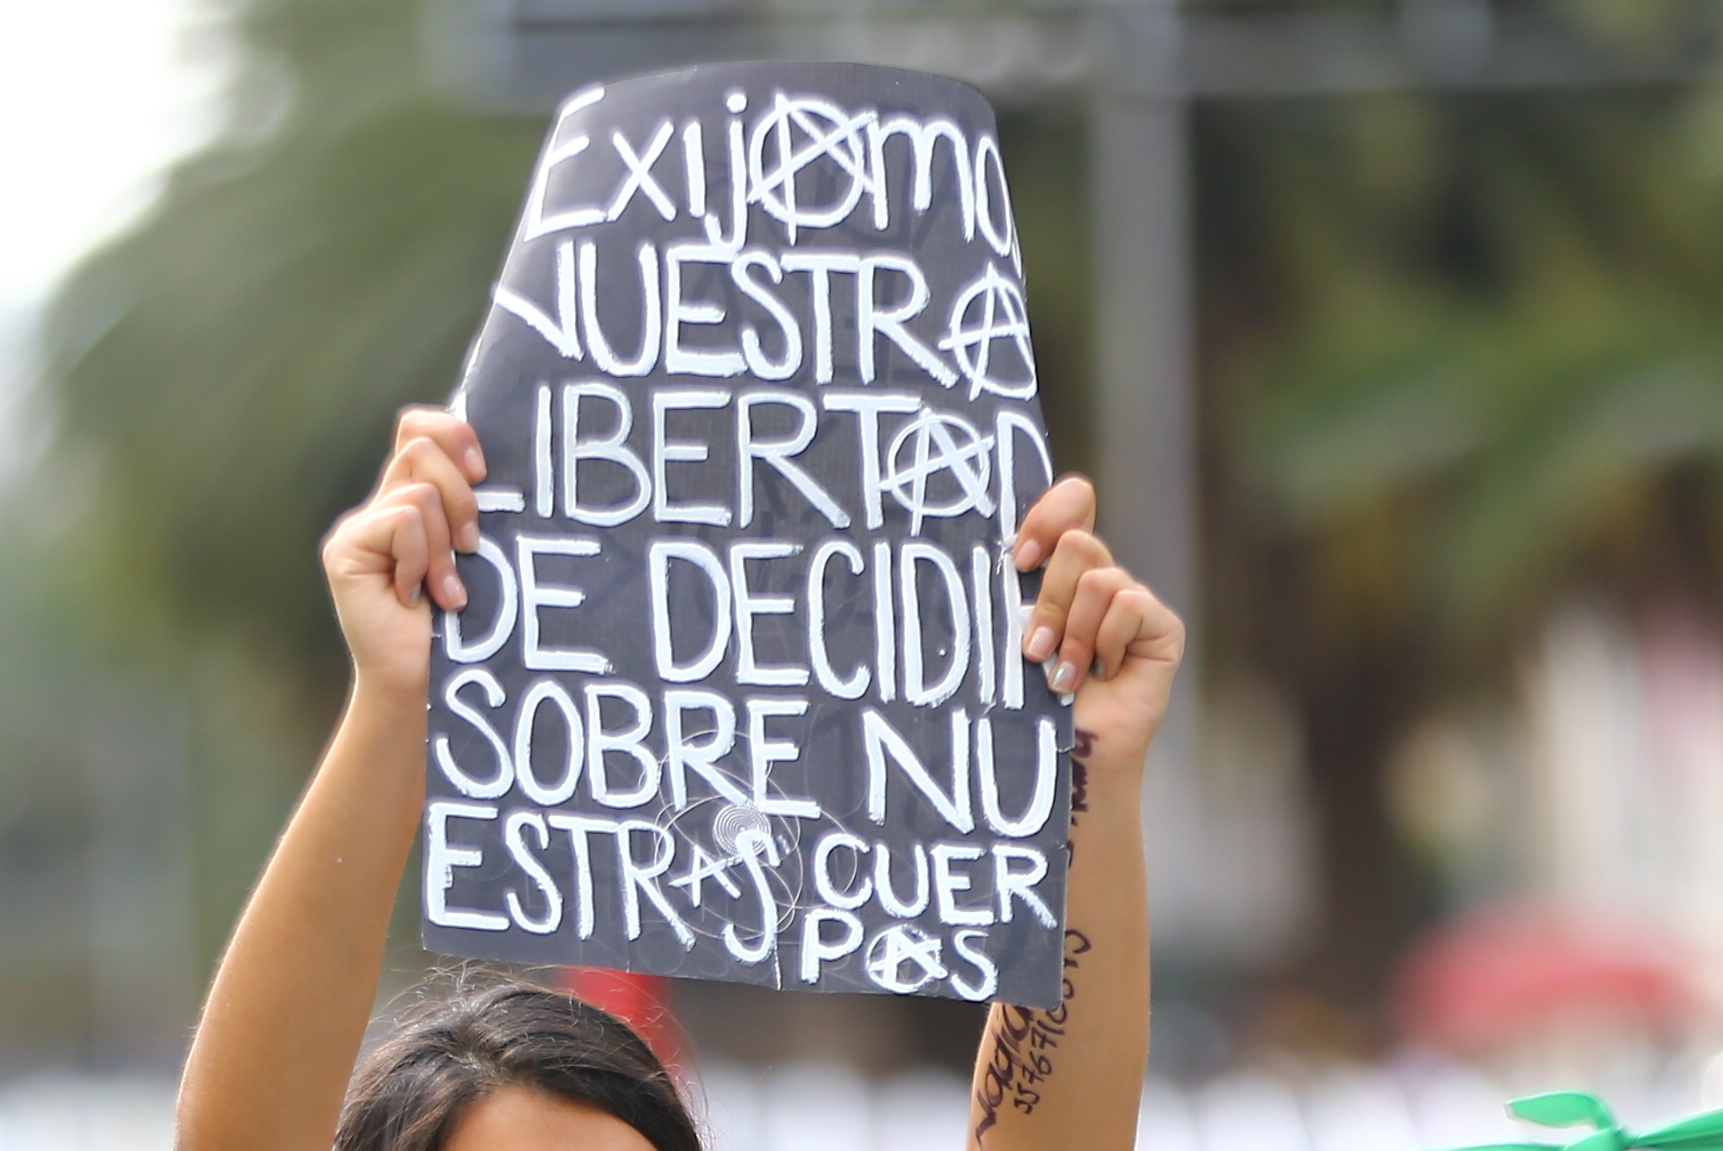 Exijamo
NUESTRA
LIBERTAD
DE DECIDIR
SOBRE NU
ESTRAS CUER
PAS